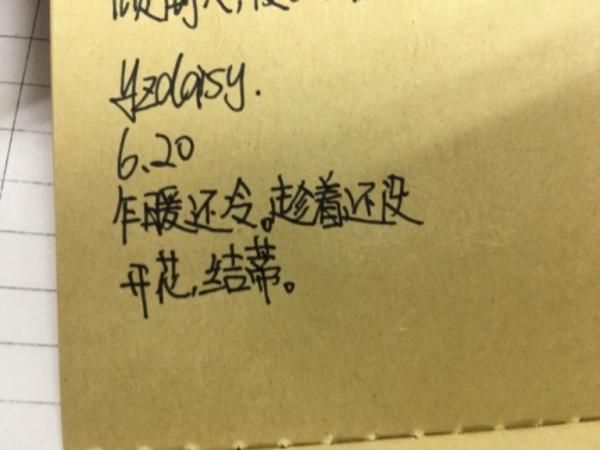 yzdaisy.
6.20
乍暖还冷。趁着还没
开花,结蒂。